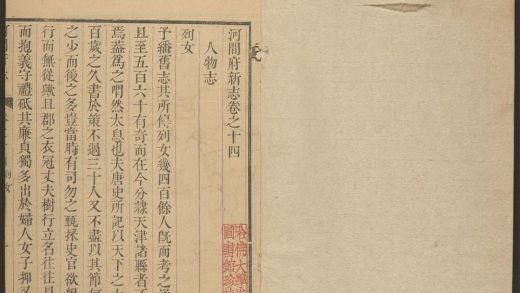 河間府新志卷之十四
人物志
列女
予繙舊志其所傳列女幾四百餘人旣而考之通
且至五百六十有奇而在今分隸天津諸縣者
焉蓋爲之喟然太息也夫唐史所記以天下之
百歲之久書於策不過三十人又不盡以其節何
之少而後之多豈當時有司勿之甄採史官欲
行而無從歟且郡之衣冠丈夫樹行立名往往
而抱義守禮砥其廉貞獨多出於婦人女子抑又
列女
哈佛大學
圖書館珍